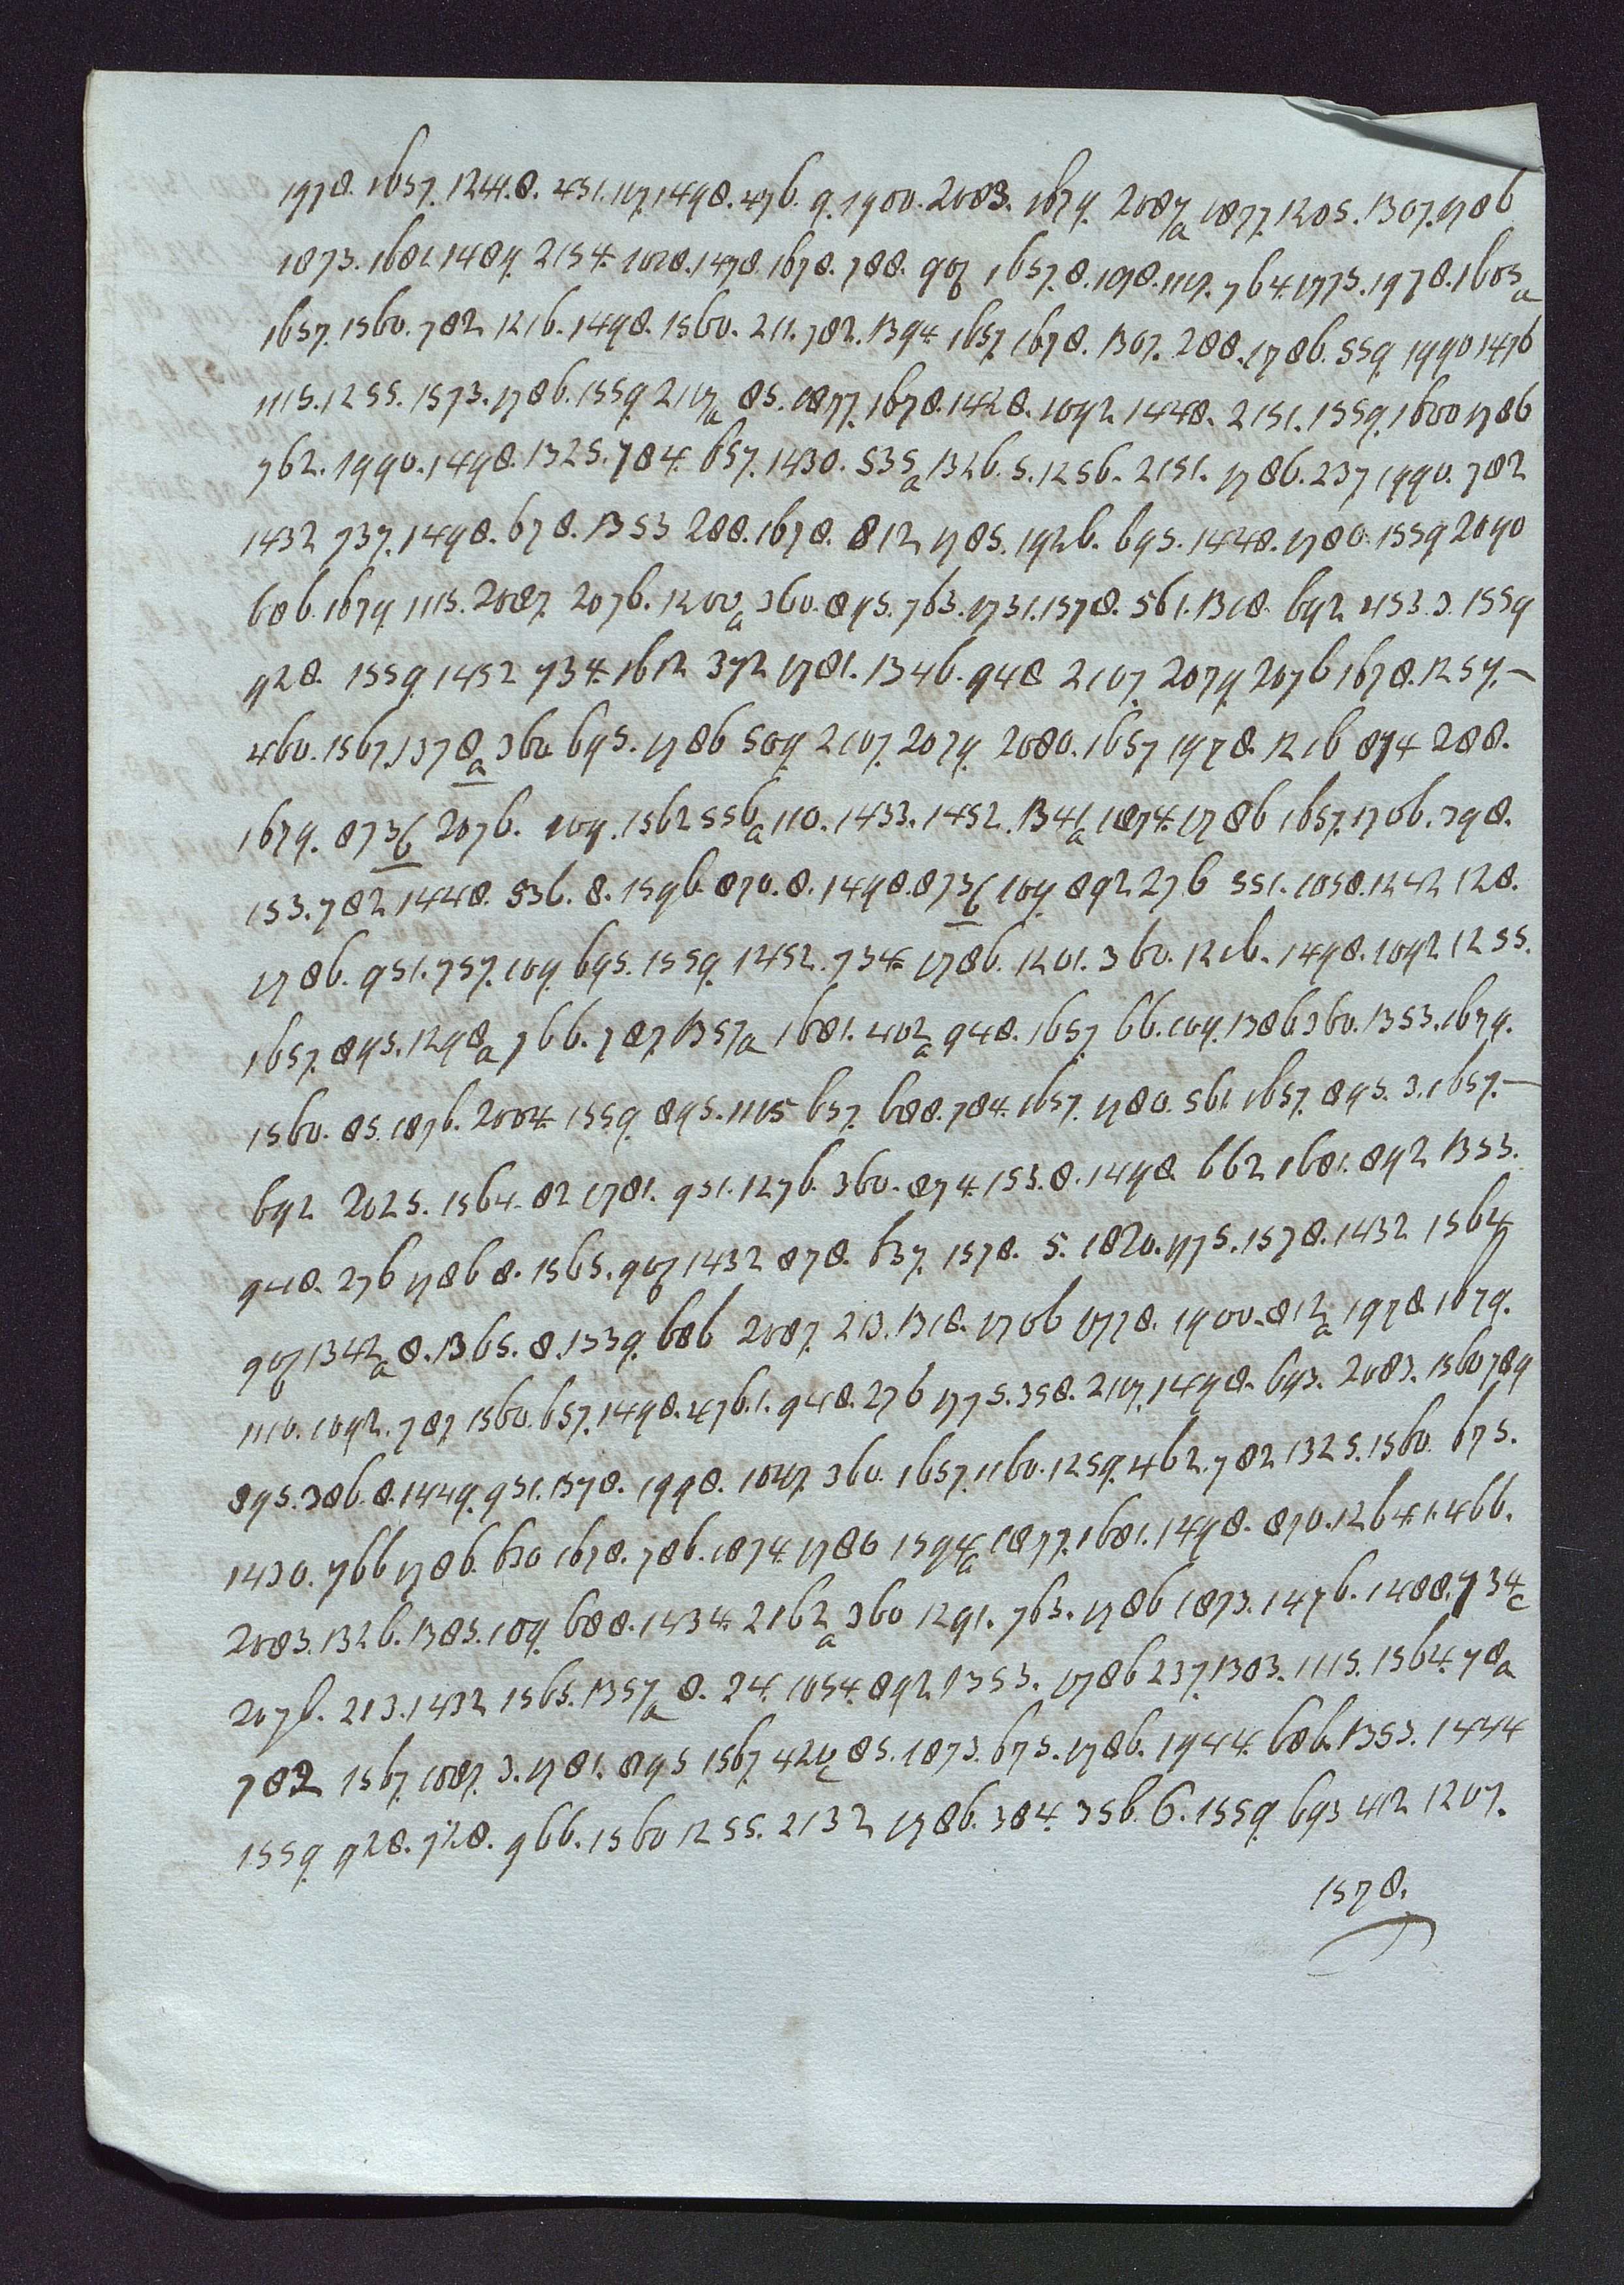 1978. 1657. 1241. 8. 451. 107. 1498. 476. 9. 1900. 2083. 1679. 2087a 1877. 1205. 1307. 1786
1873. 1681. 1489. 2154. 1028. 1478. 1678. 788. 907b 1657. 8. 1098. 1117. 764. 1775. 1978. 1603a
1657. 1560. 782 1216. 1498. 1560. 211. 782. 1394 1657. 1678. 1307. 288. 1786. 559. 1990 1476
1115. 1255. 1573. 1786. 1559. 2107a 85. 1877. 1678. 1428. 1092 1448. 2151. 1559. 1600 1786
762. 1990. 1498. 1325. 784. 657. 1430. 535a 1326. 5. 1256. 2151. 1786. 237 1990. 782
1432 737. 1498. 678. 1353 288. 1678. 812 1785. 1926. 695. 1448. 1780. 1559 2090
686. 1679. 1115. 2087. 2076. 1200a 360. 895. 763. 1731. 1578. 561. 1318. 692 453. 3. 1559
928. 1559. 1452 734. 1612 372 1781. 1346. 948 2107. 2079. 2076 1678. 1257. –
460. 1567. 1378a 360 695. 1786 509. 2107. 2079. 2080. 1657 1978. 1216 874 288.
1679. 873b 2076. 109. 1562 556a 110. 1433. 1452. 1341a 1874. 1786 1657. 1706. 798.
153. 782 1448. 536. 8. 1596. 870. 8. 1498. 873b 109. 892 276 551. 1058. 1242 128.
1786. 951. 757. 109. 695. 1559. 1452. 734. 1786. 1201. 360. 1216. 1498. 1092 1255.
1657. 895. 1298a 766. 787. 1357a 1681. 402a 948. 1657. 66. 109. 1386 360. 1353. 1679.
1560. 85. 1876. 2004. 1559. 895. 1115 657. 688. 784. 1657. 1780. 561. 1657. 895. 3. 1657. –
692 2025. 1564. 82 1781. 951. 1276. 360. 874. 153. 8. 1498 662 1681. 892 1353.
948. 276 1786 8. 1565. 907b 1432 878. 637. 1578. 5. 1820. 1775. 1578. 1432 1564
907b 1342a 8. 1365. 8. 1339. 686 2087. 213. 1318. 1706 1778. 1900. 812a 1978. 1679.
1110. 1092. 787. 1560. 657. 1498. 476. 1. 948. 276 1775. 358. 2107. 1498. 693. 2083. 1560 789
895. 386. 8. 1449. 951. 1378. 1998. 1047. 360. 1657. 1160. 1259. 462. 782 1325. 1560. 675.
1430. 766 1786. 630 1678. 786. 1874. 1786 1594a 1877. 1681. 1498. 870. 1264. 1. 466.
2083. 1326. 1385. 109. 688. 1434. 2162a 360 1291. 763. 1786 1873. 1476. 1488. 734c
2076. 213. 1432 1565. 1357a 8. 24. 1054. 892. 1353. 1786 237. 1303. 1115. 1564. 78a
782 1567. 1087. 3. 1781. 895 1567. 420c 85. 1873. 675. 1786. 1944. 686. 1353. 1444
1559. 928. 728. 966. 1560 1255. 2132 1786. 384. 356. 6. 1559. 693 412 1207.
1578.